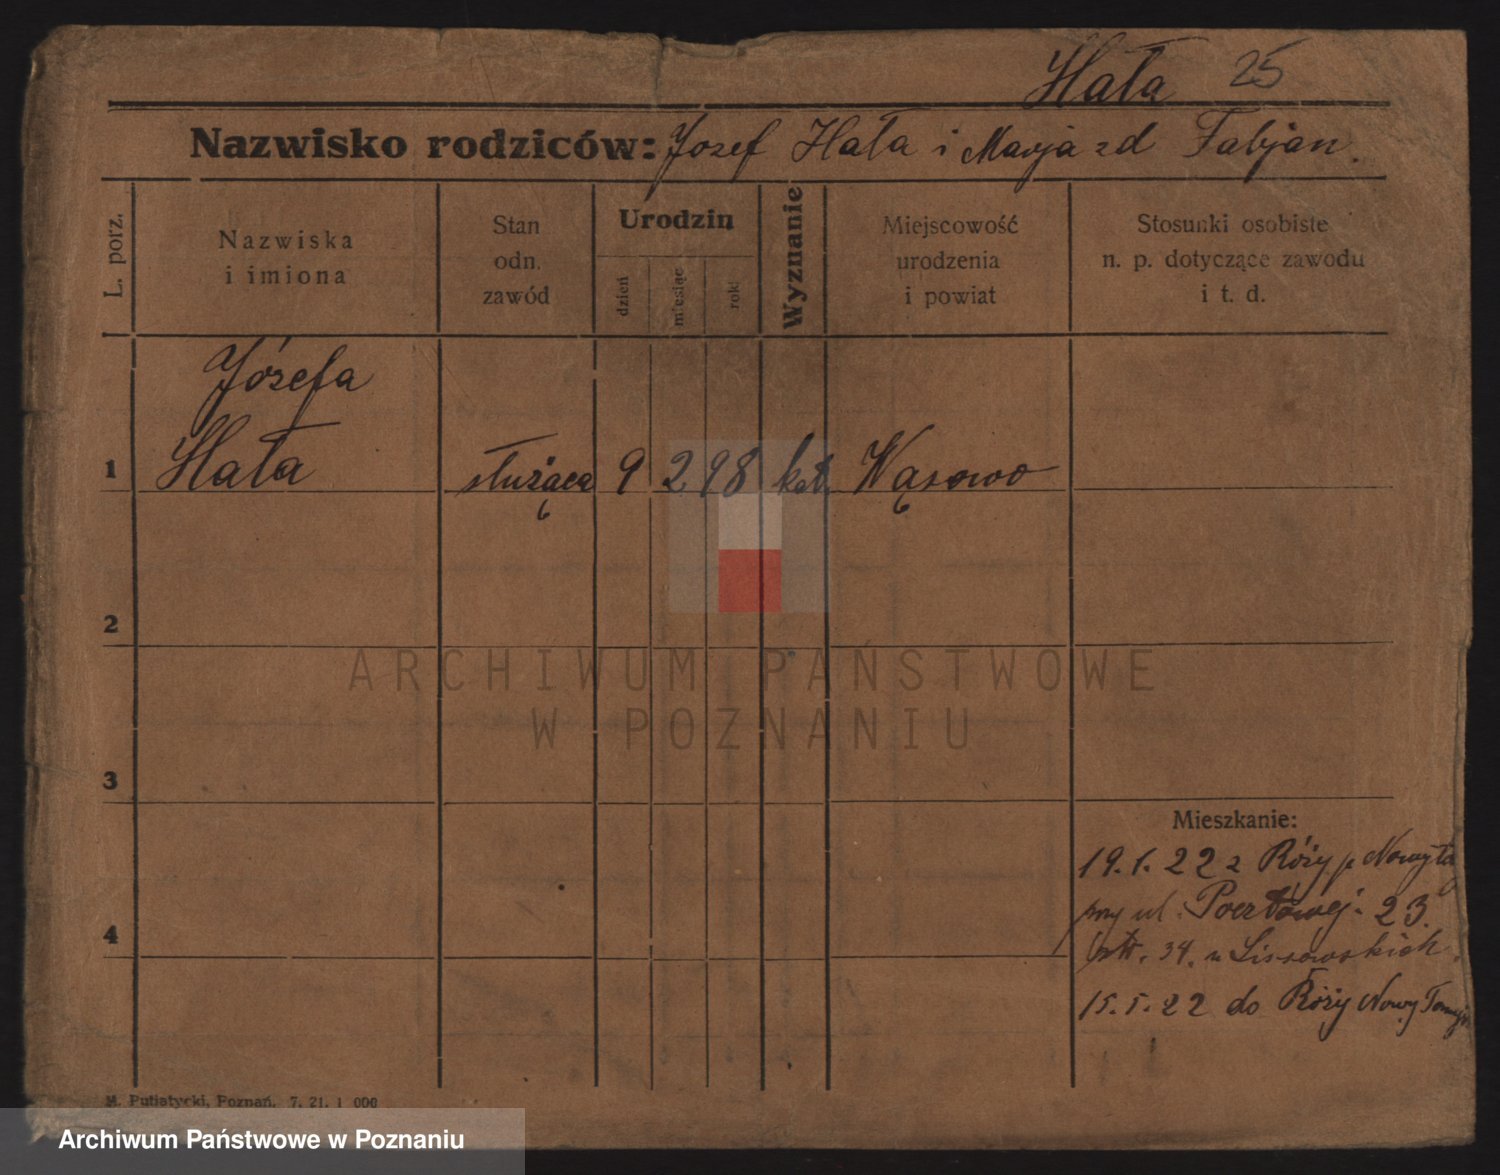 Hała 25
Nazwisko rodziców: Józef Hała i Marja zd Fabjan.
L. porz.
Nazwiska
i imiona
Stan
odn.
zawód
Urodzin
dzień
miesiąc
rok
Wyznanie
Miejscowość
urodzenia
i powiat
Stosunki osobiste
n. p. dotyczące zawodu
i t. d.
Józefa
1 Hała służąca 9 2 98 kat. Wąsowo
2
ARCHIWUM PAŃSTWOWE
W POZNANIU
3
Mieszkanie:
19.1.22 z Róży p Nowy
przy ul. Pocztowej 23.
34. u Lissowskich.
4
15.5.22 do Róży Nowy
M. Putiatycki, Poznań. 7. 21. 1 000
Archiwum Państwowe w Poznaniu